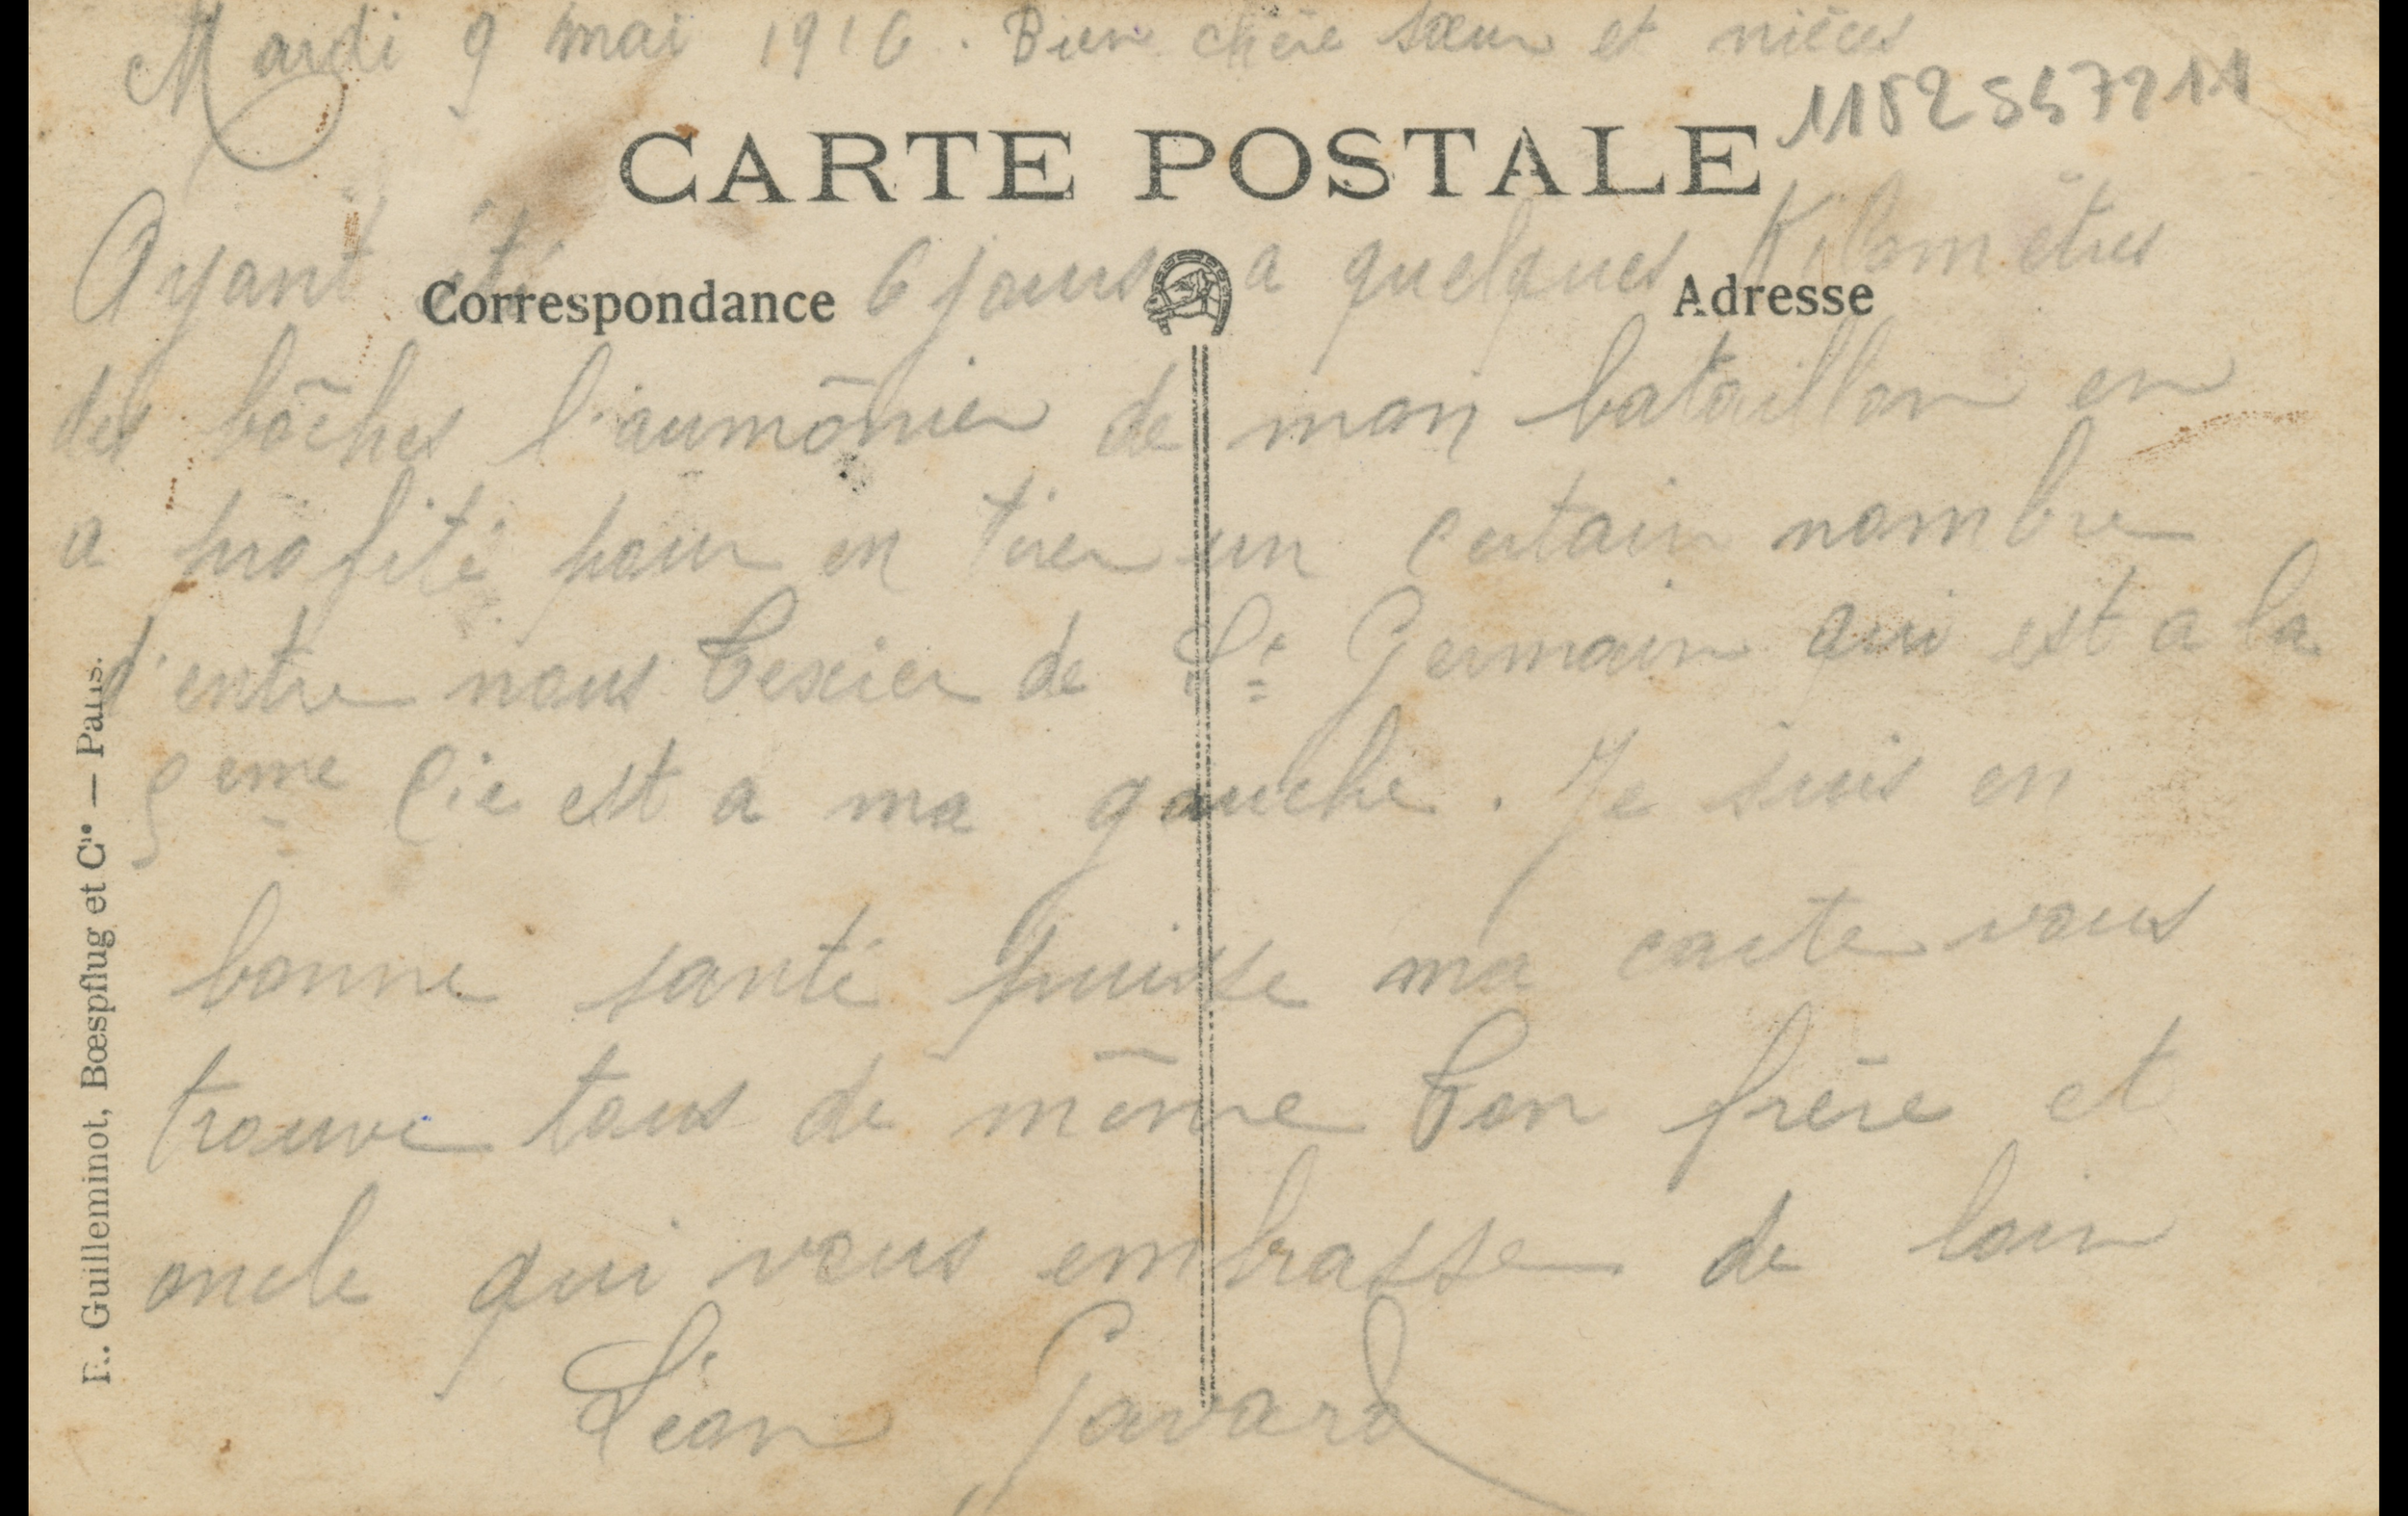 Mardi 9 mai 1916. Bien chère sœur et nièces
CARTE POSTALE
Ayant été 6 jours a quelques Kilomètres
Correspondance
Adresse
des bôches l'aumônier de mon bataillon en
a profité pour en tirer un certain nombre
d'entre nous Texier de St Germain qui est a la
9eme Cie est a ma gauche. Je suis en
bonne santé puisse ma carte vous
trouve tous de même Ton frère et
oncle qui vous embrasse de loin
Léon Gavard
R. Guilleminot, Bœspflug et Cie — Paris.